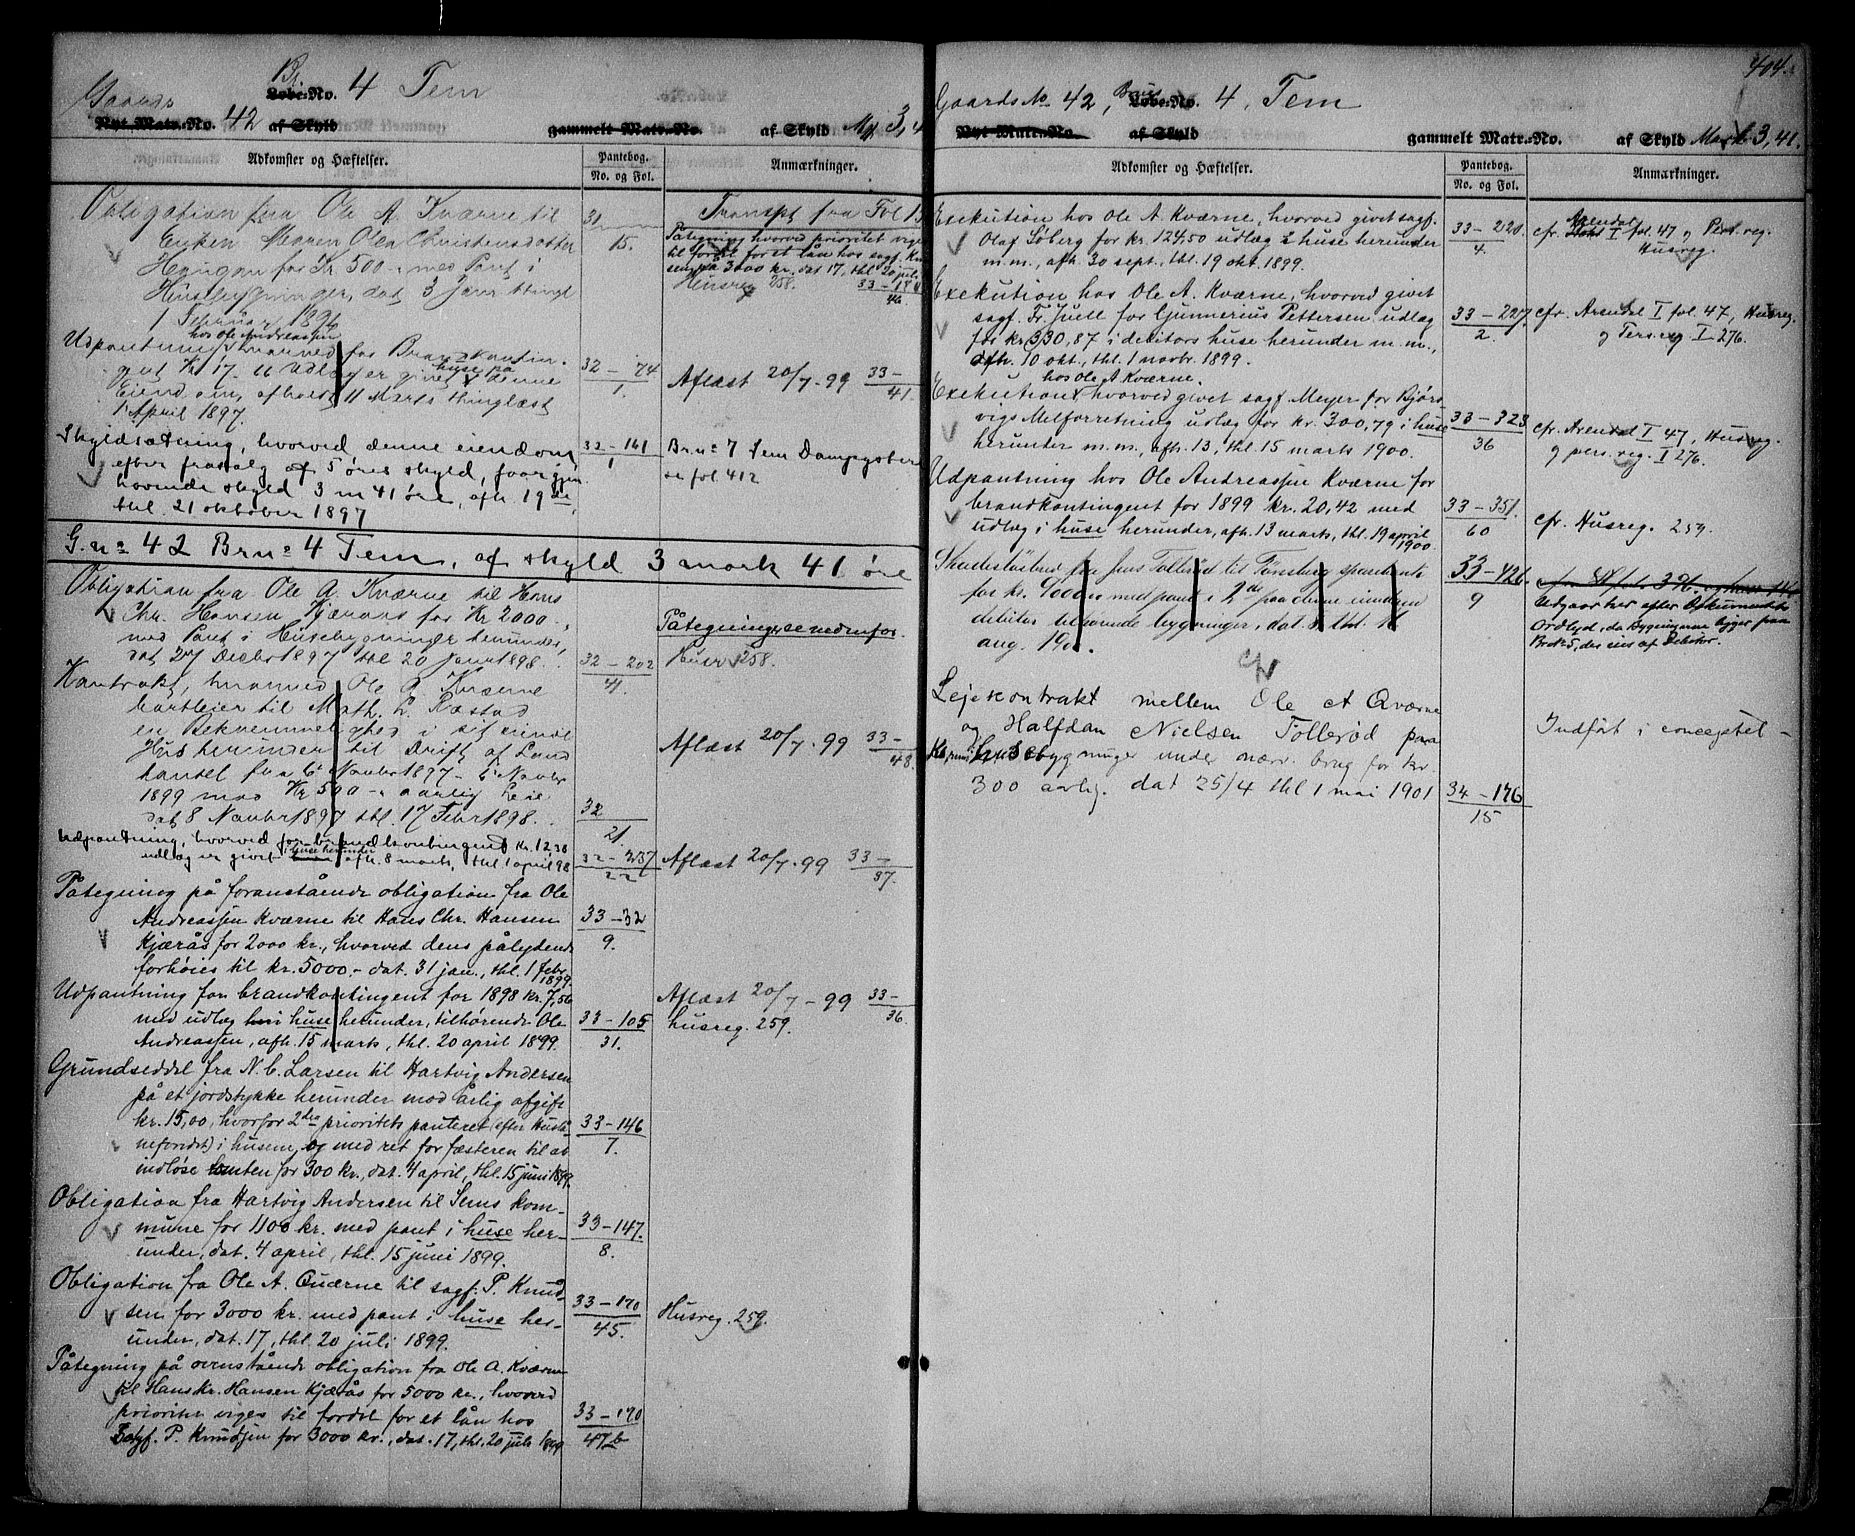 Gaards Br. Løbe-No. 4 Tem
Nyt Matr.-No. 42 af Skyld gammelt Matr.-No. af Skyld Mk 3,4
Adkomster og Hæftelser. Pantebog. No. og Fol. Anmærkninger.
Obligation fra Ole A. Kværne til
Enken Maren Olea Christensdatter
Haugan for Kr 500 - med Pant i
Husebygninger, dat 3 Januar thinglæst
1 Februar 1896
31 15.
Transpt fra Fol 15
Påtegning, hvorved prioritet viges
til fordel for et lån hos sagf. Knud
sen på 3000 kr. dat 17, thl 20 juli
Husreg 258. 33-144 46
Udpantning hos Ole Andreassen hvorved for Brandkontin-
gent Kr 17, 11 Udlæg er givet i huse på denne
Eiendom, afholdt 11 Marts thinglæst
1 April 1897.
32-74 1. Aflæst 20/7-99 33- 41.
Skyldsætning, hvorved denne eiendom
efter frasalg af 5 øres skyld, faar gjen-
hævende skyld 3 m 41 øre, afh 19de,
thl. 21 oktober 1897
32-161 1 Br.no 7 Sem Dampysteri
se fol 412
G.no 42 Br.no 4 Tem, af skyld 3 mark 41 øre
Obligation fra Ole A Kværne til Hans
Chr. Hansen Kjærås for Kr 2000.-,
med Pant i Husebygninger herunder,
dat 27 Decbr 1897 thl 20 Januar 1898.
32-202 41.
Påtegninger se nedenfor.
Husr 258.
Kontrakt, hvorved Ole A. Kværne
bortleier til Math. L. Ræstad
en Bekvemmelighed i sit eiende
Hus herunder til Drift af Land
handel fra 6te Novbr 1897 - 6te Novbr
1899 mod Kr 500 - aarlig Leie
dat 8 Novbr 1897 thl. 17 Febr 1898.
32 21. Aflæst 20/7-99 33- 48.
Udpantning, hvorved for brandkontingent kr. 12,38
udlæg er givet i huse herunder afh. 8 marts, thl. 1 april 98
32-237 22 Aflæst 20/7-99 33- 37.
Påtegning på foranstående obligation fra Ole
Andreassen Kværne til Hans Chr. Hansen
Kjærås for 2000 kr., hvorved dens pålydende
forhøies til kr. 5000.- dat. 31 jan., thl. 1 febr
1899.
33-32 9.
Udpantning for brandkontingent for 1898 kr. 7,56
med udlæg i huse herunder, tilhørende Ole
Andreassen, afh. 15 marts, thl. 20 april 1899.
33-105 31. Aflæst 20/7-99 33- 36.
husreg. 259.
Grundseddel fra N. C. Larsen til Hartvig Andersen
på et jordstykke herunder mod årlig afgift
kr. 15,00, hvorfor 2den prioritets panteret (efter Husbå-
nefondet) i husene, og med ret for fæsteren til at
indløse tomten for 300 kr., dat. 4 april, thl. 15 juni 1899.
33-146 7.
Obligation fra Hartvig Andersen til Sems kom-
mune for 1100 kr. med pant i huse her-
under, dat. 4 april, thl. 15 juni 1899.
33-147. 8.
Obligation fra Ole A. Qværne til sagf. P. Knud-
sen for 3000 kr. med pant i huse her-
under, dat. 17, thl. 20 juli 1899.
33-170 45. Husreg. 259.
Påtegning på ovenstående obligation fra Ole A. Kværne
til Hans Kr. Hansen Kjærås for 5000 kr., hvorved
prioritet viges til fordel for et lån hos
sagf. P. Knudsen for 3000 kr., dat. 17, thl. 20 juli 1899
33-170 47b
404.
Gaards No 42, Brugs Løbe-No. 4, Tem
Nyt Matr.-No. af Skyld gammelt Matr.-No. af Skyld Mark 3,41.
Adkomster og Hæftelser. Pantebog. No. og Fol. Anmærkninger.
Exekution hos Ole A. Kværne, hvorved givet sagf.
Olaf Søberg for kr. 124,50 udlæg i huse herunder
m.m., afh. 30 sept., thl. 19 okt. 1899.
33-220. 4. cfr. Arendal I fol. 47 og Pers. reg.
Husreg.
Exekution hos Ole A. Kværne, hvorved givet
sagf. Fr. Juell for Gunnerius Pettersen udlæg
for kr. 330,87 i debitors huse herunder m.m.,
afh. 10 okt., thl. 1 novbr. 1899.
33-227. 2. cfr. Arendal I fol 47, Husreg.
og Pers.reg I 276.
Exekution hos Ole A Kværne. hvorved givet sagf. Meyer for Bjørs
vigs Melforretning udlæg for kr. 300,79 i huse
herunder m.m., afh. 13, thl. 15 marts 1900.
33-323 36 cfr. Arendal I 47, Husreg.
og pers. reg. I 276.
Udpantning hos Ole Andreassen Kværne for
brandkontingent for 1899 kr. 20,42 med
udlæg i huse herunder, afh. 13 marts, thl. 19 april
1900.
33-351. 60 cfr. Husreg. 259.
Skadesløsbrev fra Jens Tollerød til Tønsberg sparebank
for kr. 9000.- med pant i 2den paa denne eiendom
debitor tilhørende bygninger, dat. 8 thl. 11
aug. 1900.
33-426 9
Udgaar her efter Dokumentets
Ordlyd, da Bygningerne ligger paa
Br.No 5, der eies af Debitor.
Leiekontrakt mellem Ole A Qværne
og Halfdan Nielsen Tollerød paa
husebygninger under nærv. brug for kr.
300 aarlig. dat 25/4 thl 1 mai 1901
34-176 15
Indført i conceptet -